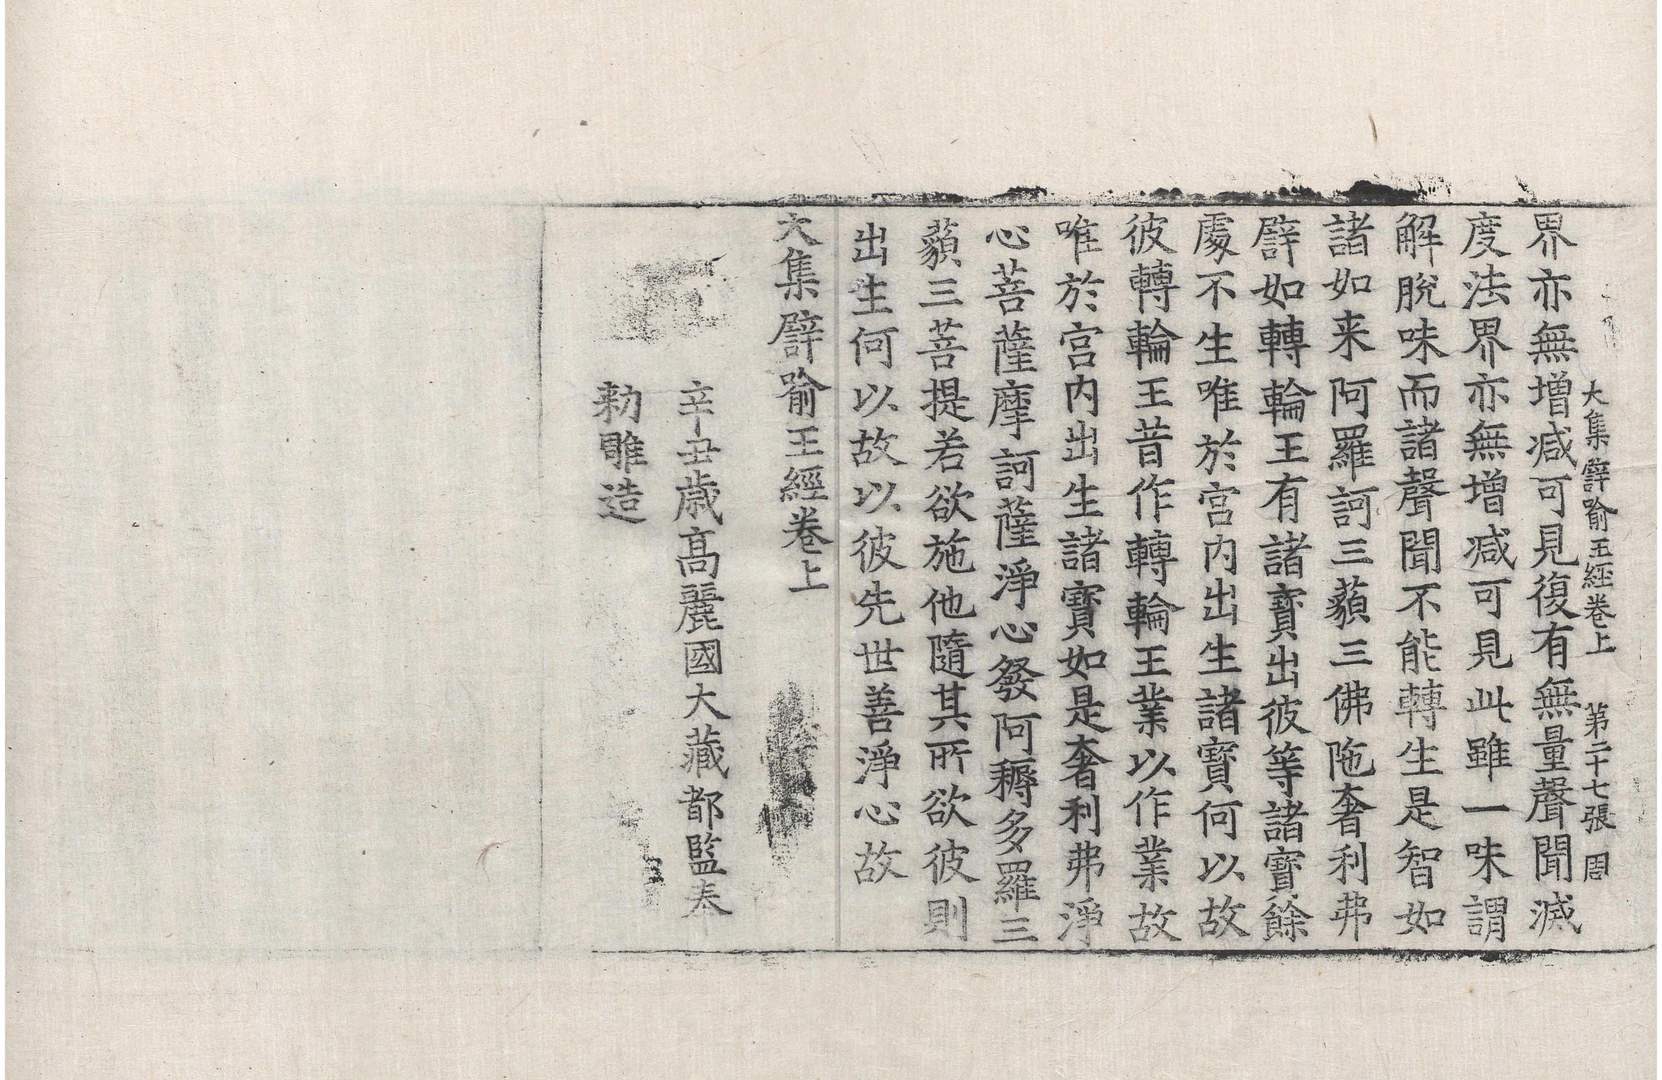 大集譬喻王經卷上 第二十七張 周
界亦無增減可見復有無量聲聞滅
度法界亦無增減可見此雖一味謂
解脫味而諸聲聞不能轉生是智如
諸如来阿羅訶三藐三佛陁奢利弗
譬如轉輪王有諸寶出彼等諸寶餘
處不生唯於宮內出生諸寶何以故
彼轉輪王昔作轉輪王業以作業故
唯於宮內出生諸寶如是奢利弗淨
心菩薩摩訶薩淨心發阿耨多羅三
藐三菩提若欲施他隨其所欲彼則
出生何以故以彼先世善淨心故
大集譬喻王經卷上
辛丑歲高麗國大藏都監奉
勑雕造